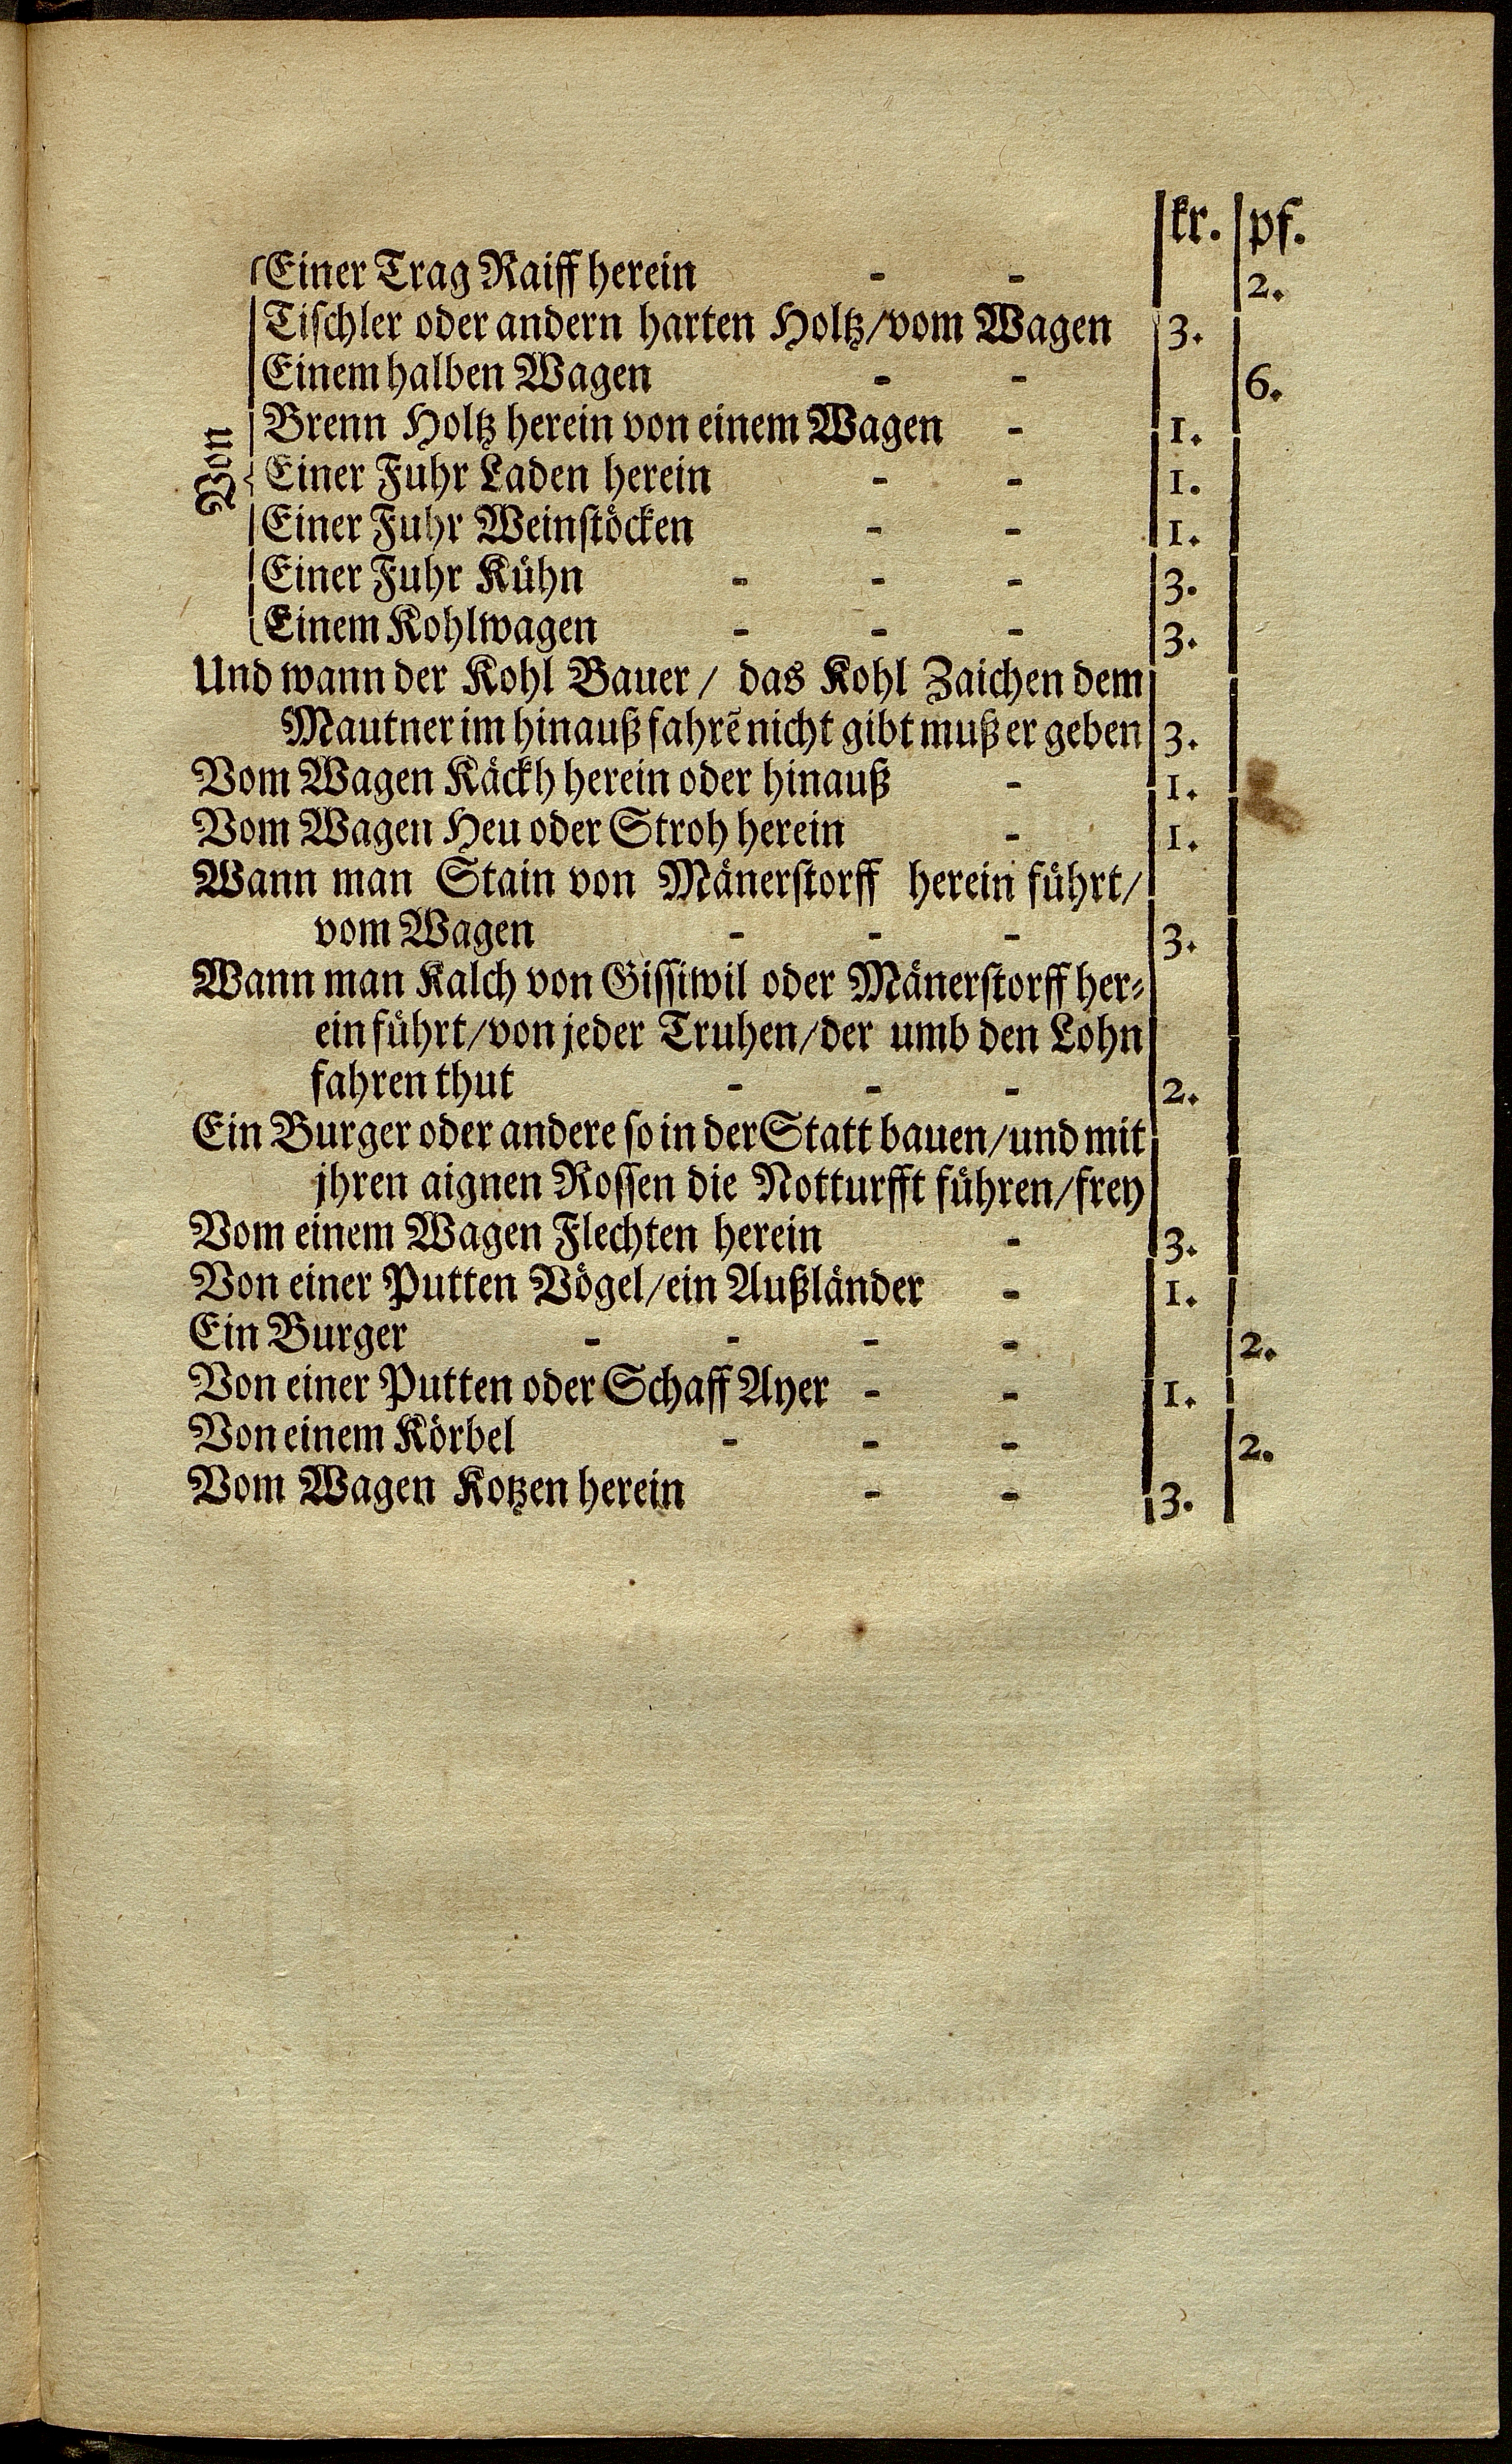 kr. pf.
Von
Einer Trag Raiff herein - - 2.
Tischler oder andern harten Holtz/vom Wagen 3.
Einem halben Wagen - - 6.
Brenn Holtz herein von einem Wagen - 1.
Einer Fuhr Laden herein - - 1.
Einer Fuhr Weinstöcken - - 1.
Einer Fuhr Kühn - - - 3.
Einem Kohlwagen - - - 3.
Und wann der Kohl Bauer / das Kohl Zaichen dem
Mautner im hinauß fahrẽ nicht gibt muß er geben 3.
Vom Wagen Käckh herein oder hinauß - 1.
Vom Wagen Heu oder Stroh herein - 1.
Wann man Stain von Mänerstorff herein führt/
vom Wagen - - - 3.
Wann man Kalch von Gissiwil oder Mänerstorff her⸗
ein führt/von jeder Truhen/der umb den Lohn
fahren thut - - - 2.
Ein Burger oder andere so in der Statt bauen/und mit
jhren aignen Rossen die Notturfft führen/frey
Vom einem Wagen Flechten herein - 3.
Von einer Putten Vögel/ein Außländer - 1.
Ein Burger - - - - 2.
Von einer Putten oder Schaff Ayer - - 1.
Von einem Körbel - - - 2.
Vom Wagen Kotzen herein - - 3.